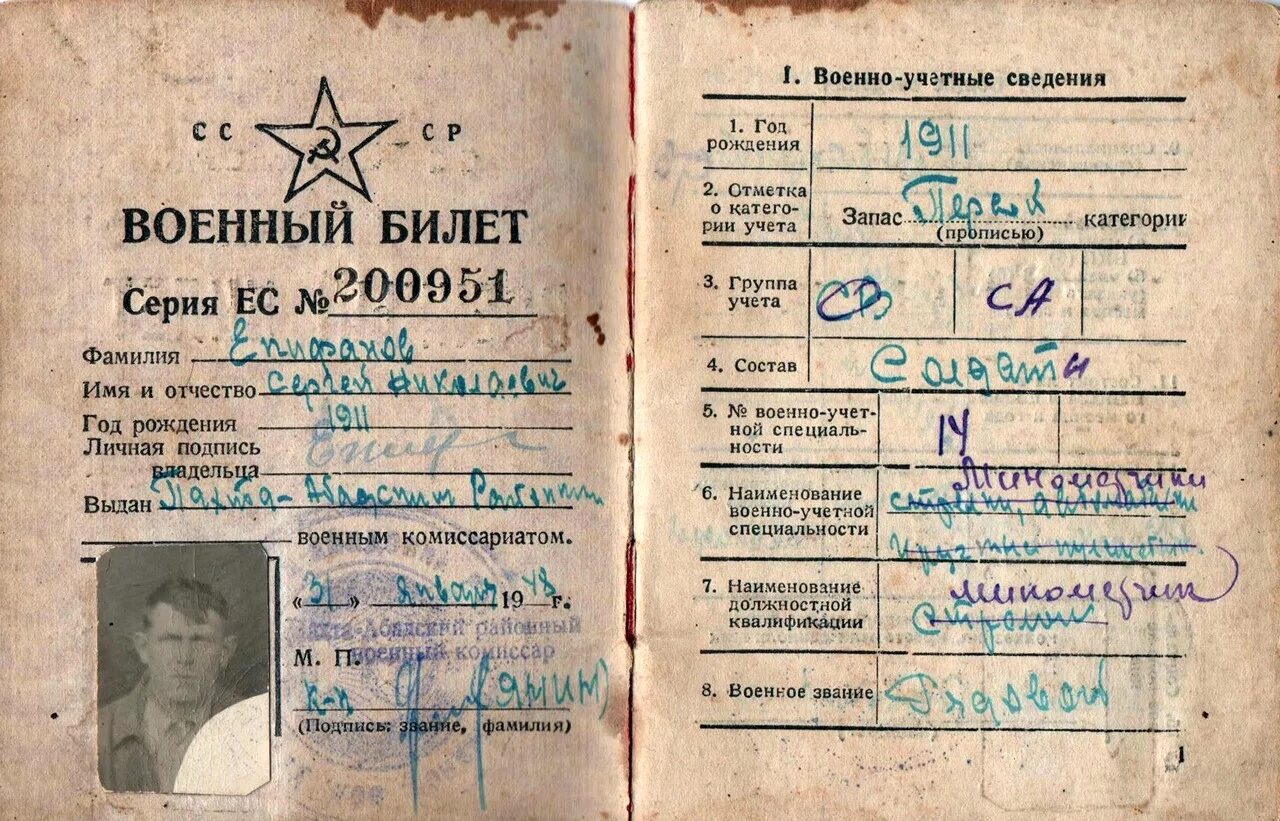 СС СР
ВОЕННЫЙ БИЛЕТ
Серия ЕС № 200951
Фамилия Епифанов
Имя и отчество Сергей Николаевич
Год рождения 1911
Личная подпись
владельца
Выдан Пахта-Абадским Районным
военным комиссариатом.
«31» января 1948 г.
Пахта-Абадский районный
военный комиссар
М. П.
к-н
(Подпись: звание, фамилия)
I. Военно-учетные сведения
1. Год
рождения
1911
2. Отметка
о катего-
рии учета
Запас Первой категории
(прописью)
3. Группа
учета
СВ СА
4. Состав
Солдаты
5. № военно-учет-
ной специаль-
ности
14
6. Наименование
военно-учетной
специальности
Минометчики
стрелки, автоматчики
7. Наименование
должностной
квалификации
минометчик
стрелок
8. Военное звание
Рядовой
1